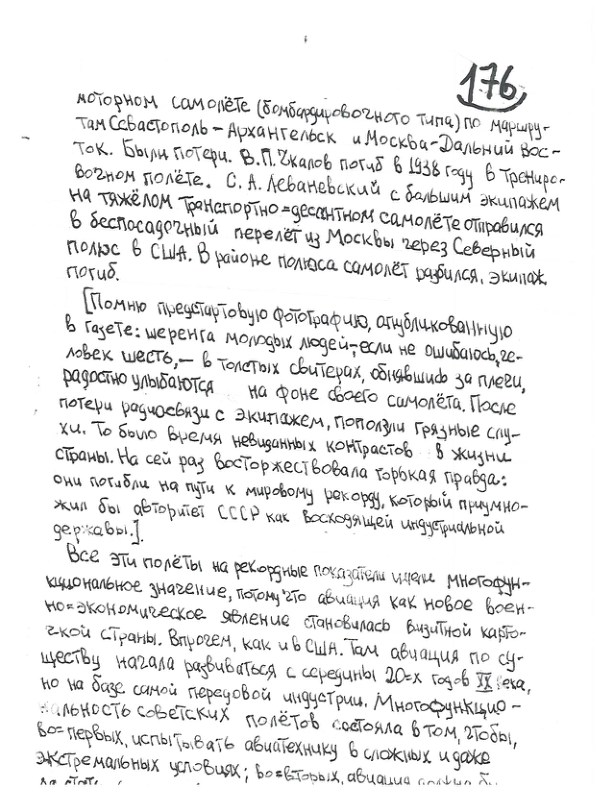 176
моторном самолёте (бомбардировочного типа) по маршру-
там Севастополь – Архангельск и Москва–Дальний Вос-
ток. Были потери. В.П. Чкалов погиб в 1938 году в трениро-
вочном полёте. С.А. Леваневский с большим экипажем
на тяжёлом транспортно=десантном самолёте отправился
в беспосадочный перелёт из Москвы через Северный
полюс в США. В районе полюса самолёт разбился, экипаж
погиб.
[Помню предстартовую фотографию, опубликованную
в газете: шеренга молодых людей,–если не ошибаюсь, че-
ловек шесть,– в толстых свитерах, обнявшись за плечи,
радостно улыбаются на фоне своего самолёта. После
потери радиосвязи с экипажем, поползли грязные слу-
хи. То было время невиданных контрастов в жизни
страны. На сей раз восторжествовала горькая правда:
они погибли на пути к мировому рекорду, который приумно-
жил бы авторитет СССР как восходящей индустриальной
державы.].
Все эти полёты на рекордные показатели имели многофун-
кциональное значение, потому что авиация как новое воен-
но=экономическое явление становилась визитной карто-
чкой страны. Впрочем, как и в США. Там авиация по су-
ществу начала развиваться с середины 20=х годов XX века,
но на базе самой передовой индустрии. Многофункцио-
нальность советских полётов состояла в том, чтобы,
во=первых, испытывать авиатехнику в сложных и даже
экстремальных условиях; во=вторых, авиация должна бы